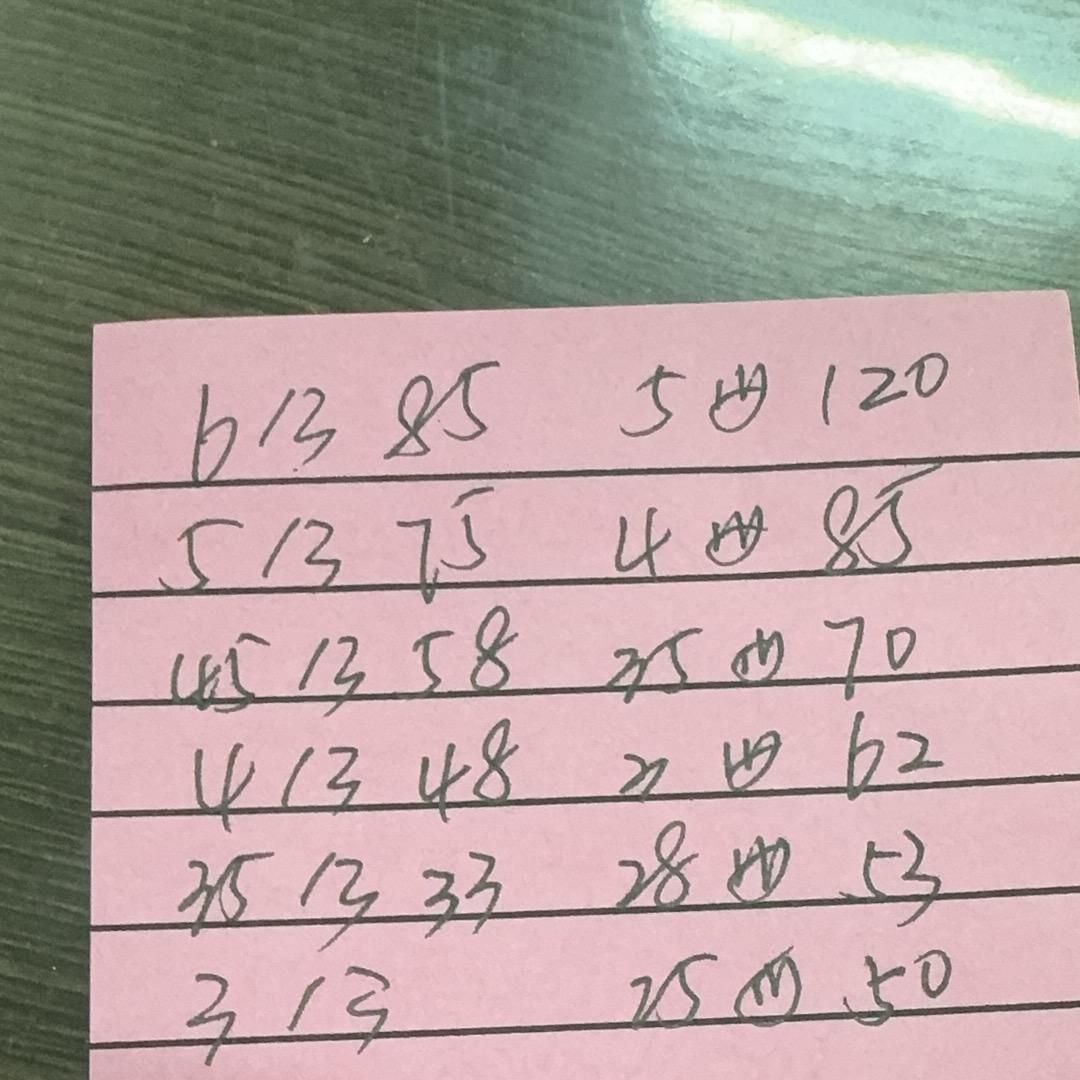 6 13 85 5 120
5 13 75 4 85
45 13 58 35 70
4 13 48 3 62
35 13 33 28 53
3 13 25 50